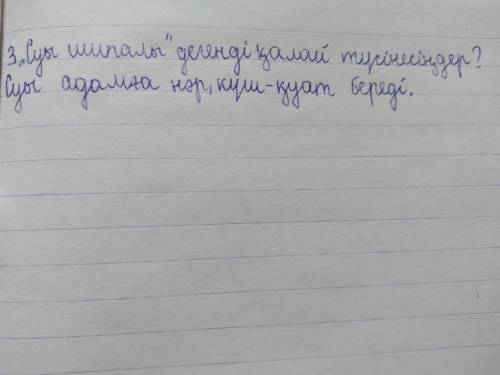 3„Суы шипалы" дегенді қалай түсінесіңдер?
Суы адамға нәр, күш-қуат береді.